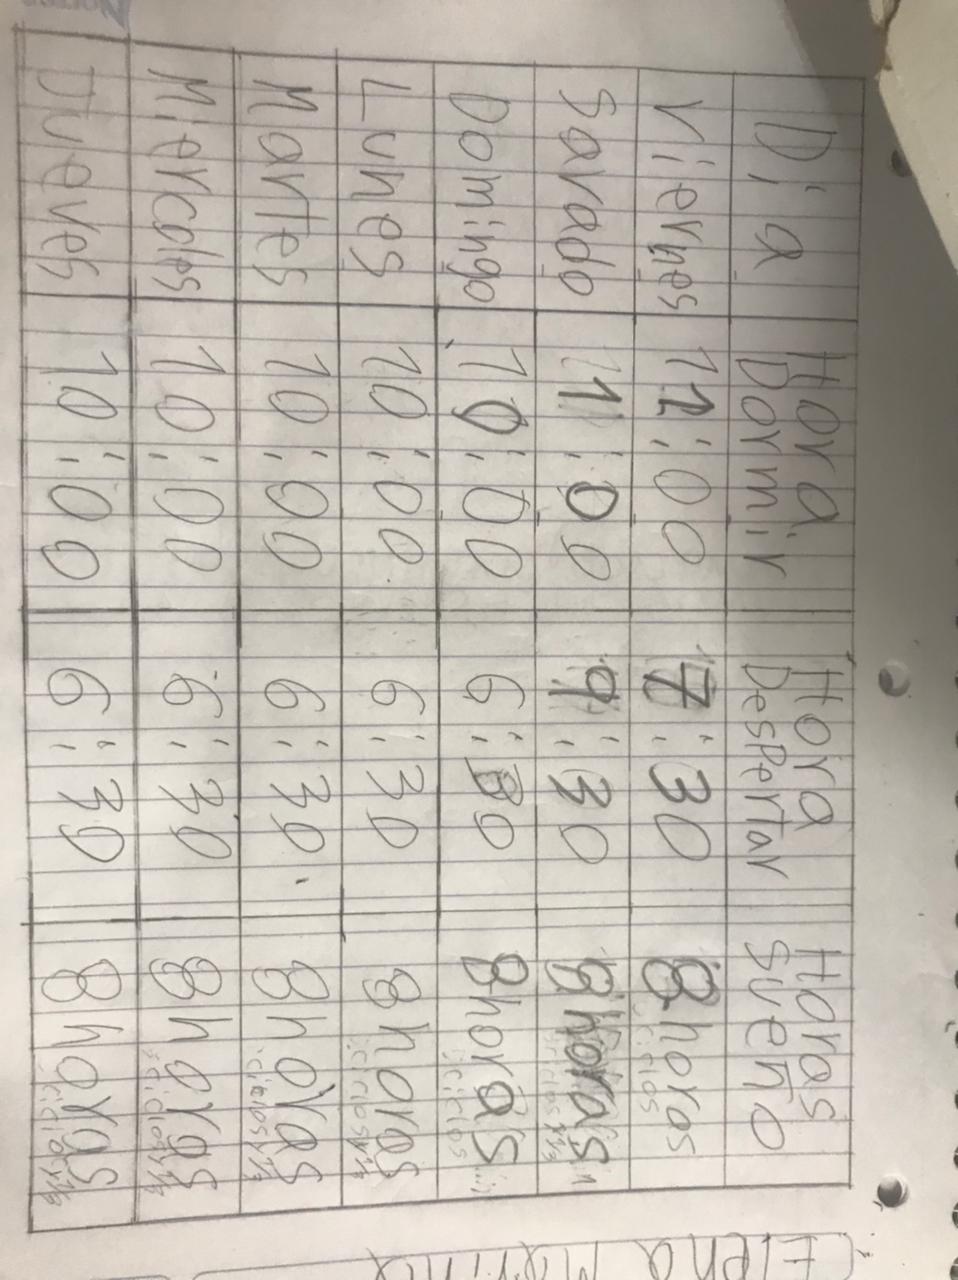 Elena Marina
Dia Hora Dormir Hora Despertar Horas Sueño
Viernes 11:00 7:30 8 horas
ciclos
Savado 11:00 9:30 8 horas
Domingo 10:00 6:30 8 horas
ciclos
Lunes 10:00 6:30 8 horas
ciclos y 1/2
Martes 10:00 6:30 8 horas
ciclos y 1/2
Miercoles 10:00 6:30 8 horas
ciclos y 1/2
Jueves 10:00 6:30 8 horas
ciclos y 1/2